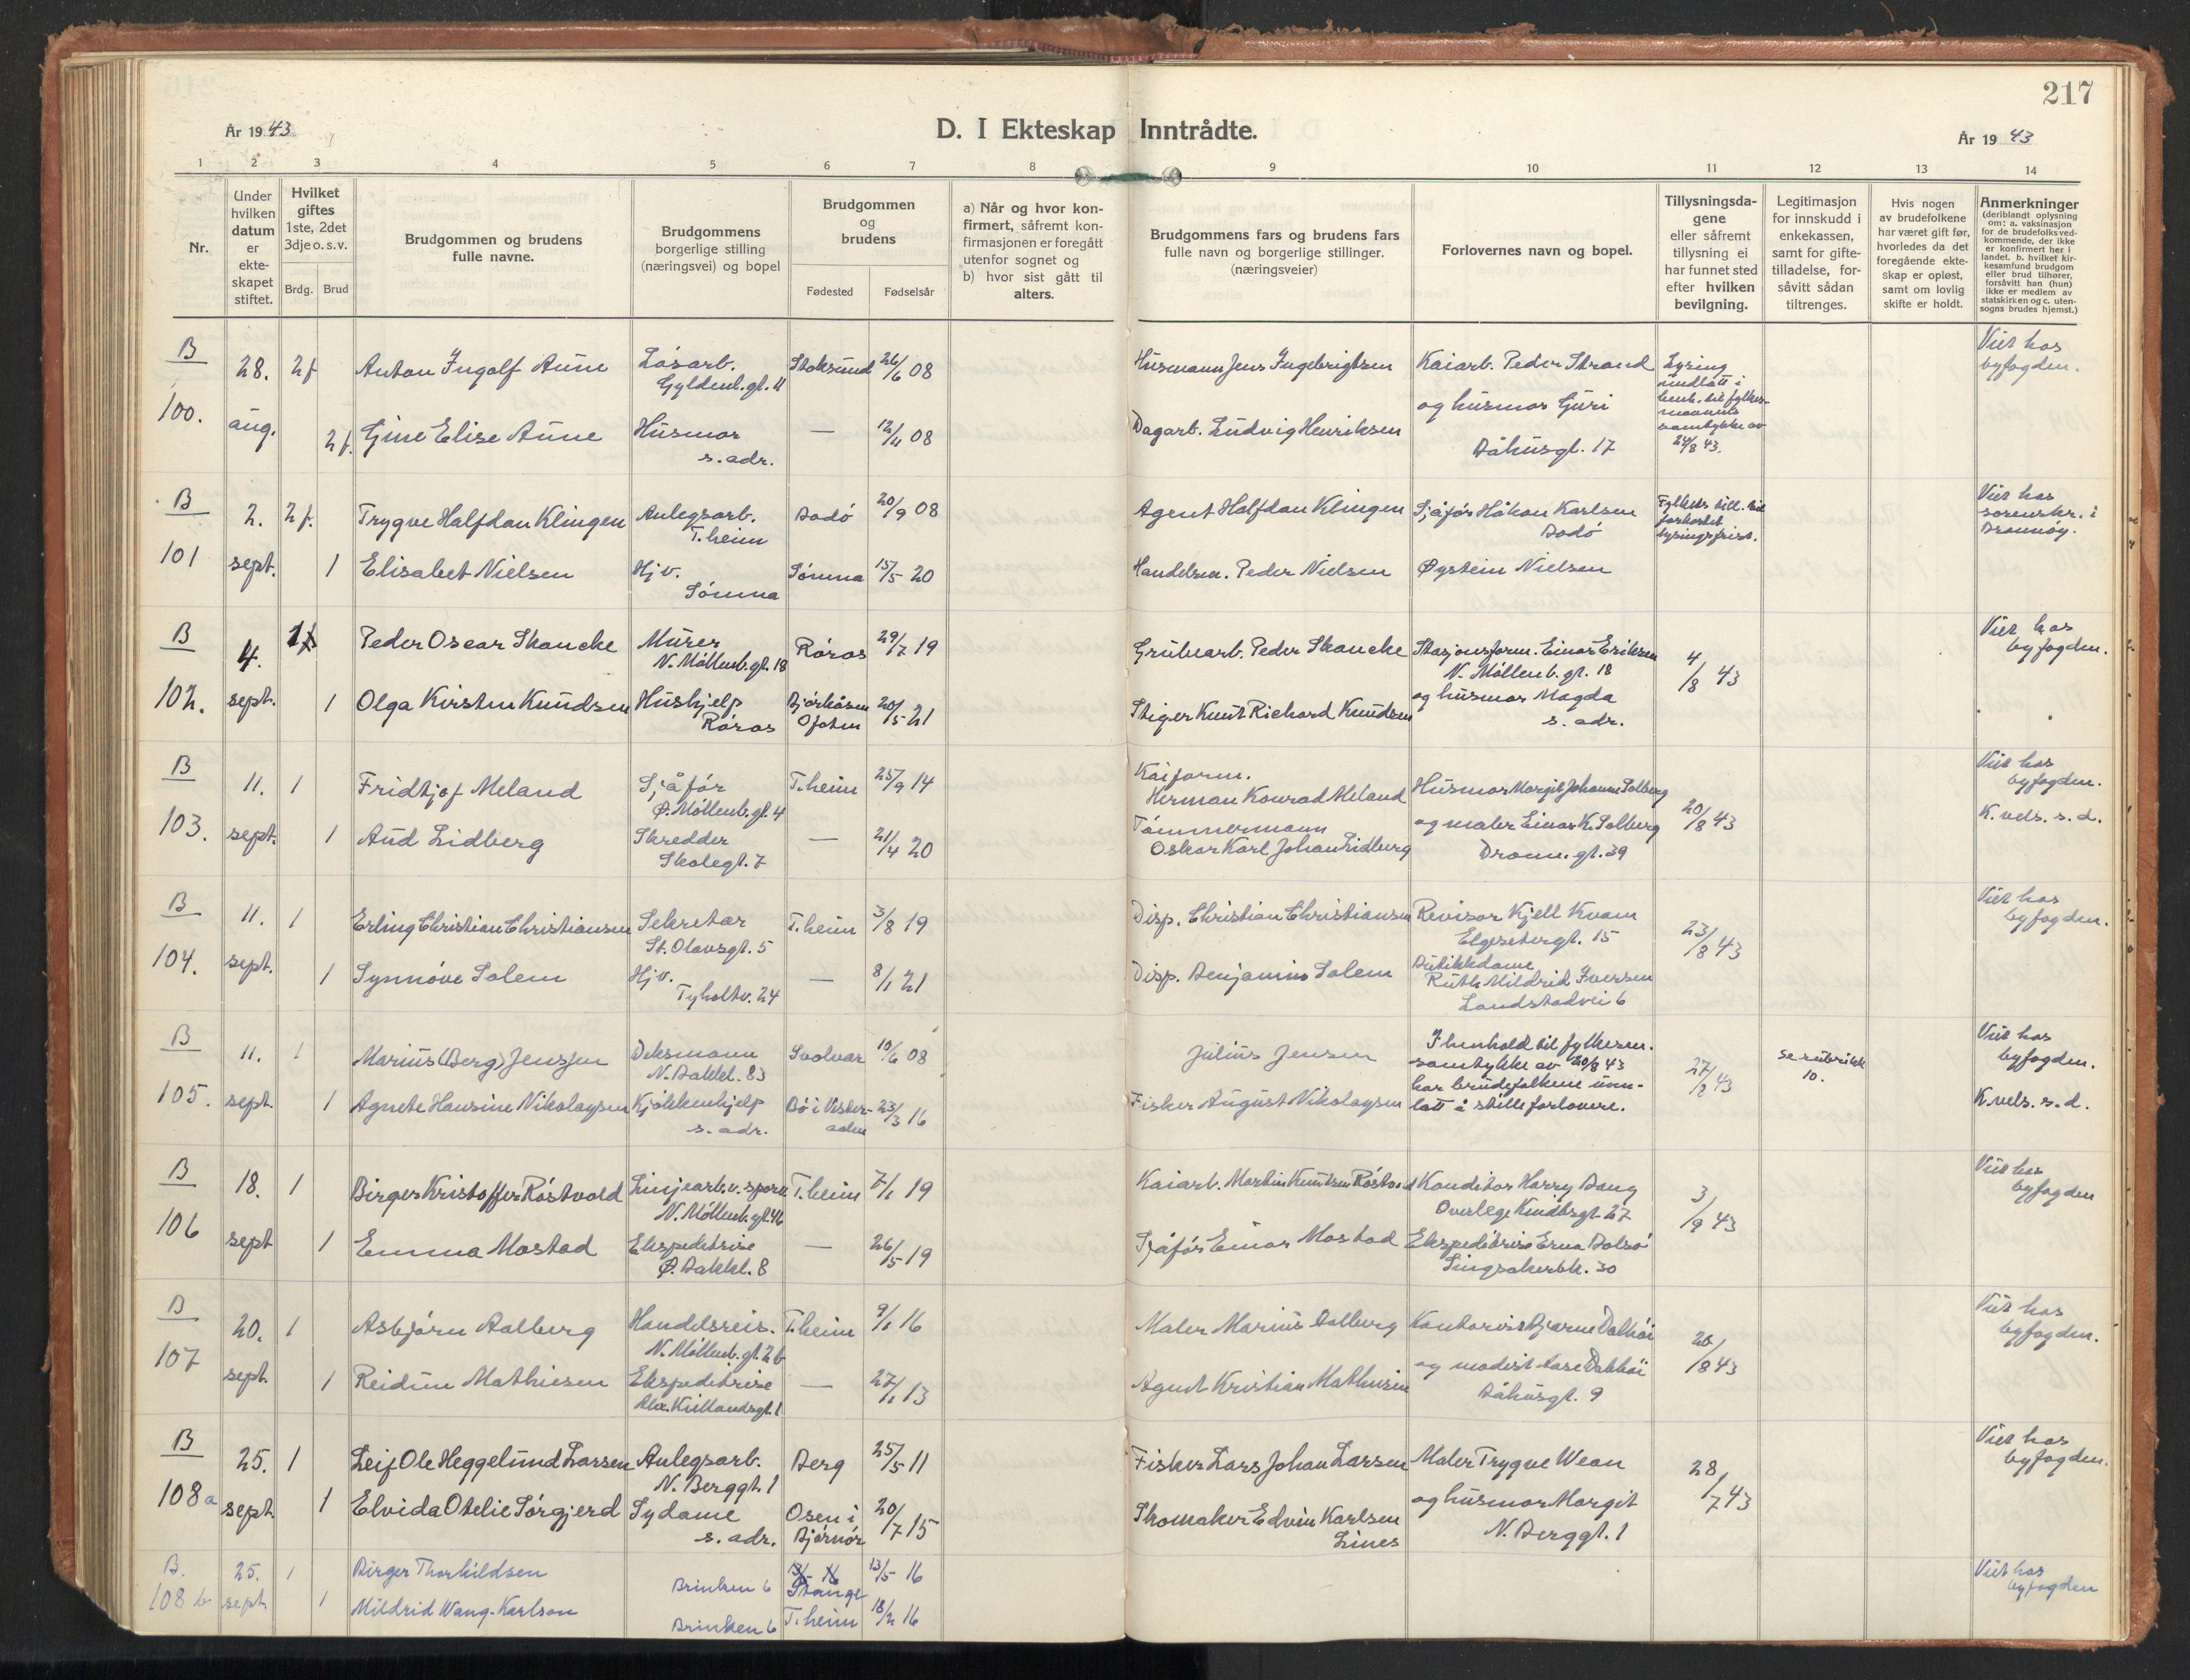 217
År 1943.
D. I Ekteskap Inntrådte.
År 1943
1 2 3 4 5 6 7 8 9 10 11 12 13 14
Nr.
Under hvilken datum er ekteskapet stiftet.
Hvilket giftes 1ste, 2det 3dje o.s.v.
Brdg. Brud
Brudgommen og brudens fulle navne.
Brudgommens borgerlige stilling (næringsvei) og bopel
Brudgommen og brudens
Fødested Fødselsår
a) Når og hvor konfirmert, såfremt konfirmasjonen er foregått utenfor sognet og
b) hvor sist gått til alters.
Brudgommens fars og brudens fars fulle navn og borgerlige stillinger. (næringsveier)
Forlovernes navn og bopel.
Tillysningsdagene eller såfremt tillysning ei har funnet sted efter hvilken bevilgning.
Legitimasjon for innskudd i enkekassen, samt for giftetilladelse, forsåvitt sådan tiltrenges.
Hvis nogen av brudefolkene har været gift før, hvorledes da det foregående ekteskap er opløst, samt om lovlig skifte er holdt.
Anmerkninger (deriblandt oplysning om: a. vaksinasjon for de brudefolks vedkommende, der ikke er konfirmert her i landet. b. hvilket kirkesamfund brudgom eller brud tilhører, forsåvitt han (hun) ikke er medlem av statskirken og c. utensogns brudes hjemst.)
B 100. 28. aug.
2 f Anton Ingolf Aune Løsarb. Gyldenl.gt. 11 Stoksund 26/6 08 Husmann Jens Ingebrigtsen
2 f. Gine Elise Aune Husmor s. adr. — 12/11 08 Dagarb. Ludvig Henriksen
Kaiarb. Peder Strand
og husmor Guri
Båhusgt. 17
Lysing
undlatt i
henh. til fylkes-
mannens
samtykke av
24/8 43.
Viet hos
byfogden.
B 101 2. sept.
2 f. Trygve Halfdan Klingen Anlegsarb. T.heim Bodö 20/9 08 Agent Halfdan Klingen
1 Elisabet Nielsen Hjv. Sömna Sömna 15/5 20 Handelsm. Peder Nielsen
Sjåför Håkon Karlsen
Bodö
Øystein Nielsen
Fylkets till. til
forkortet
lysingsfrist.
Viet hos
sorenskr. i
Brønnöy.
B 102. 4. sept.
Peder Oscar Skancke Murer N. Möllenb.gt. 18 Röros 29/7 19 Grubearb. Peder Skancke
1 Olga Kirsten Knudsen Hushjelp Röros Bjørkåsen Ofoten 20/5 21 Stiger Knut Richard Knudsen
Stasjonsform. Einar Eriksen
N. Möllenb.gt. 18
og husmor Magda
s. adr.
4/8 43
Viet hos
byfogden.
B 103. 11. sept.
1 Fridtjof Meland Sjåför Ø. Möllenb.gt. 4 T.heim 25/9 14 Kaiform. Herman Konrad Meland
1 Aud Lidberg Skredder Skolegt. 7 — 21/4 20 Tömmermann Oskar Karl Johan Lidberg
Husmor Margit Johanne Solberg
og maler Einar K. Solberg
Dronn.gt. 39
20/8 43
Viet hos
byfogden.
K. vels. s. d.
B 104. 11. sept.
1 Erling Christian Christiansen Sekretær St. Olavsgt. 5 T.heim 3/8 19 Disp. Christian Christiansen
1 Synnöve Solem Hjv. Tyholtv. 24 — 8/1 21 Disp. Benjamin Solem
Revisor Kjell Kvam
Elgesetergt. 15
Butikkdame
Ruth Mildrid Iversen
Landstadvei 6
23/8 43
Viet hos
byfogden.
B 105. 11. sept.
1 Marius (Berg) Jensen Deksmann N. Bakkl. 83 Svolvær 10/6 08 Julius Jensen
1 Agnete Hansine Nikolaysen Kjökkenhjelp s. adr. Bö i Vesteraalen 23/3 16 Fisker August Nikolaysen
I henhold til fylkesm.
samtykke av 20/8 43
har brudefolkene unn-
latt å stille forlovere.
27/8 43
se rubrikk
10.
Viet hos
byfogden.
K. vels. s. d.
B 106 18. sept
1 Birger Kristoffer Röstvold Linjearb. v. sporv. N. Möllenb.gt. T.heim 7/1 19 Kaiarb. Martin Knutsen Röstvold
1 Emma Mostad Ekspeditrise Ø. Bakkl. 8 — 26/5 19 Sjåför Einar Mostad
Konditor Harry Bang
Overlege Kindtsgt. 27
Ekspeditrise Erna Bolsö
Singsakerbk. 30
3/9 43
Viet hos
byfogden
B 107 20. sept.
1 Asbjörn Aalberg Handelsreis. N. Möllenb.gt. 2 b T.heim 9/1 16 Maler Marius Aalberg
1 Reidun Mathiesen Ekspeditrise Alx. Kiellandsgt. 1 — 27/1 13 Agent Kristian Mathiesen
Kontorist Bjarne
og modist Aase
Båhusgt. 9
20/8 43
Viet hos
byfogden.
B 108 a 25. sept.
1 Leif Ole Heggelund Larsen Anlegsarb. N. Berggt. 1 Berg 25/5 11 Fisker Lars Johan Larsen
1 Elvida Otelie Sörgjerd Sydame s. adr. Osen i Björnör 20/7 15 Skomaker Edvin Karlsen Lines
Maler Trygve Wean
og husmor Margit
N. Berggt. 1
28/7 43
Viet hos
byfogden.
B. 108 b 25. sept.
1 Birger Thorkildsen Brinken 6 Stange 13/5 16
1 Mildrid Wang-Karlson Brinken 6 T.heim 18/2 16
Viet hos
byfogden